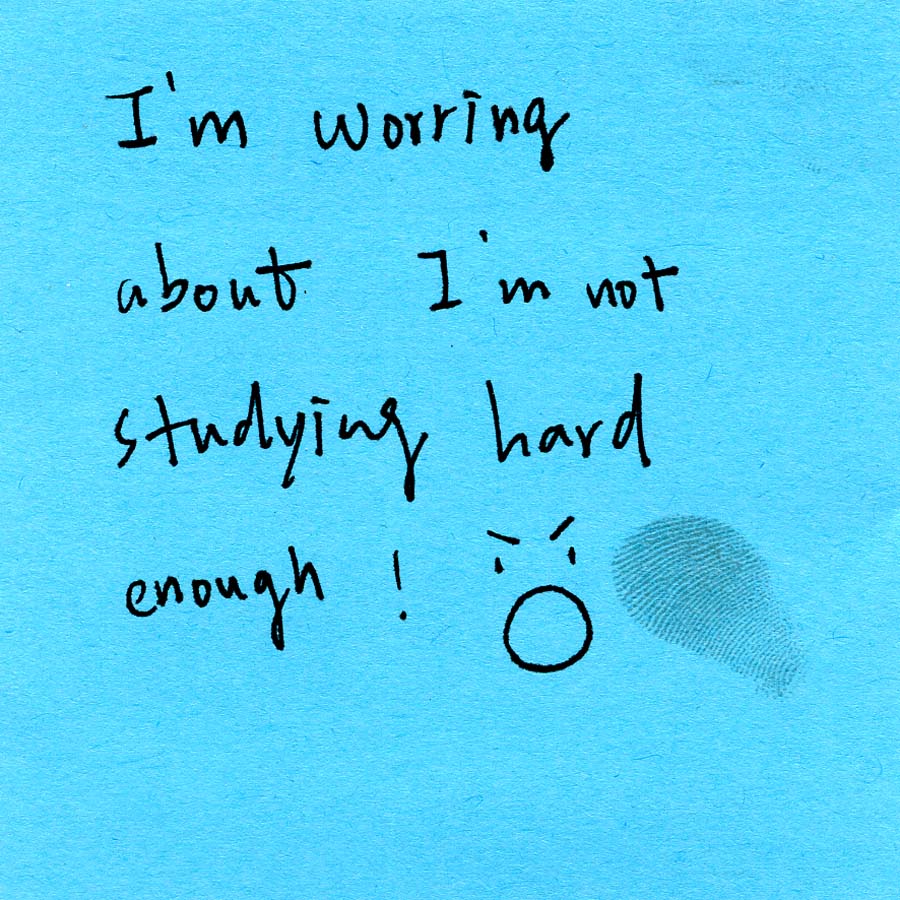 I'm worring
about I'm not
studying hard
enough!